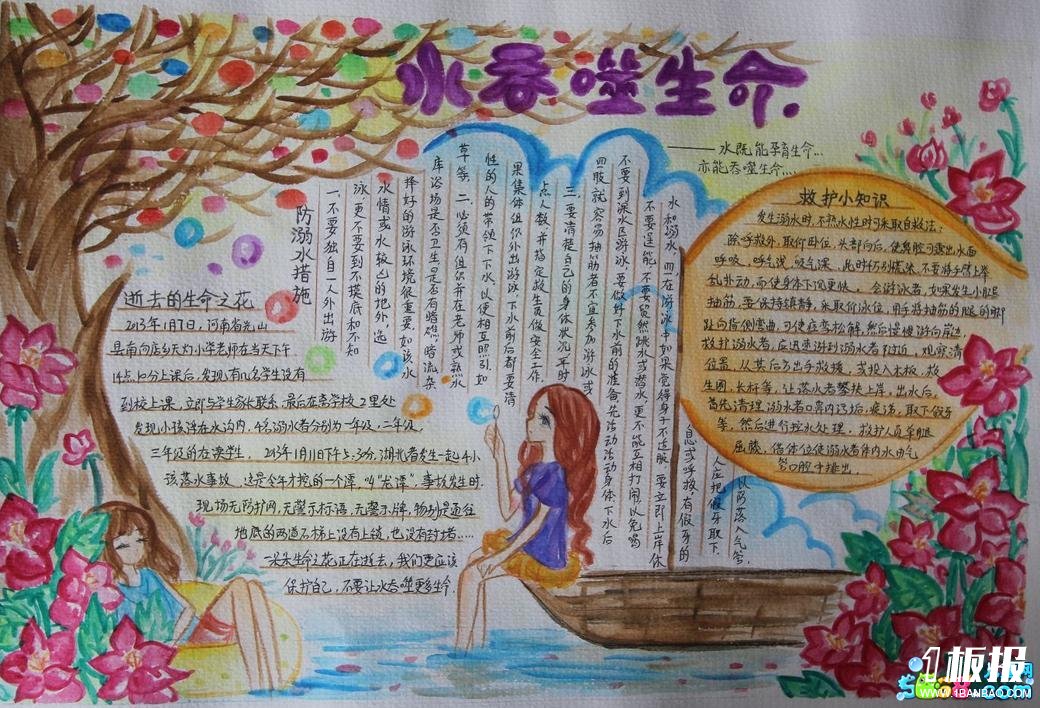 水吞噬生命.
——水既能孕育生命...
亦能吞噬生命....
防溺水措施
一、不要独自一人外出游
泳，更不要到不摸底和不知
水情或水较凶的地外，选
择好的游泳环境很重要，如该水
库浴场是否卫生，是否有暗礁，暗流，杂
草等。二、必须有组织并在老师或熟水
性的人的带领下下水，以便相互照引。如
果集体组织外出游泳，下水前后都要清
点人数，并指定救生员做安全工作。
三、要清楚自己的身体状况，平时
四肢就容易抽筋者不宜参加游泳或
不要到深水区游泳，要做好下水前的准备，先活动活动身体，下水后
不要逞能，不要贸然跳水或潜水，更不能互相打闹，以免喝
水和溺水。四、在游泳中如果觉得身子不适服，要立即上岸休
息或呼救，有假牙的
人应把假牙取下，
以防落入气管。
逝去的生命之花
2013年1月7日，河南省光山
县南向店乡天灯小学老师在当天下午
14点10分上课后，发现有几名学生没有
到校上课，立即与学生家长联系，最后在离学校2里处
发现小孩浮在水沟内，4名溺水者分别为一年级，二年级，
三年级的在读学生。2013年1月11日下午5.3分，湖北省发生一起4小
孩落水事故，这是今年才挖的一个潭，叫“龙潭”，事故发生时，
现场无防护网，无警示标语，无警示牌，特别是通往
地底的两道石梯上没有上锁，也没有封堵.....
一朵朵生命之花正在逝去，我们更应该
保护自己，不要让水吞噬更多生命.
救护小知识
发生溺水时，不熟水性时可采取自救法：
除呼救外，取仰卧位，头部向后，使鼻腔可露出水面
呼吸，呼气浅，吸气深，此时千万别慌张，不要将手臂上举
乱扑动，而使身体下沉更快，会游泳者，如果发生小腿
抽筋，要保持镇静，采取仰泳位，用手将抽筋的腿的脚
趾向背侧弯曲，可使痉挛松解，然后慢慢游向岸边。
救护溺水者，应迅速游到溺水者附近，观察清
位置，从其后方出手救援，或投入木板，救
生圈，长杆等，让落水者攀扶上岸，出水后，
首先清理溺水者口鼻内污泥，痰涕，取下假牙
等，然后进行控水处理，救护人员单腿
屈膝，俯体位使溺水者体内水由气
管口腔中排出。
1板报
WWW.1BANBAO.COM